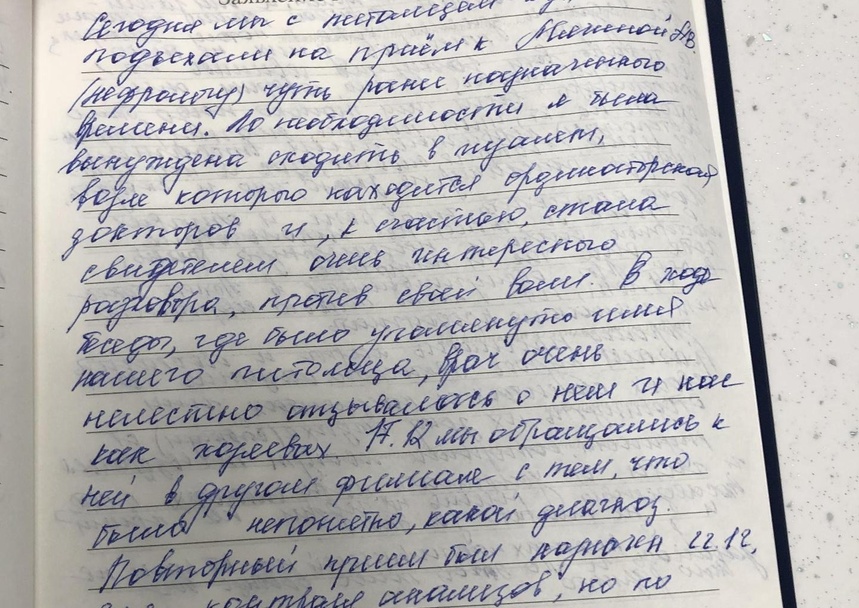 Сегодня мы с питомцем
подъехали на приём к Мячиной АВ.
(нефрологу) чуть ранее назначенного
времени. По необходимости я была
вынуждена сходить в туалет,
возле которого находится ординаторская
докторов и, к счастью, стала
свидетелем очень интересного
разговора, против своей воли. В ходе
беседы, где было упомянуто имя
нашего питомца, врач очень
нелестно отзывалась о нем и нас
как хозяевах. 17.12 мы обращались к
ней в другом филиале с тем, что
было непонятно, какой диагноз.
Повторный прием был назначен 22.12,
контроля анализов, но по